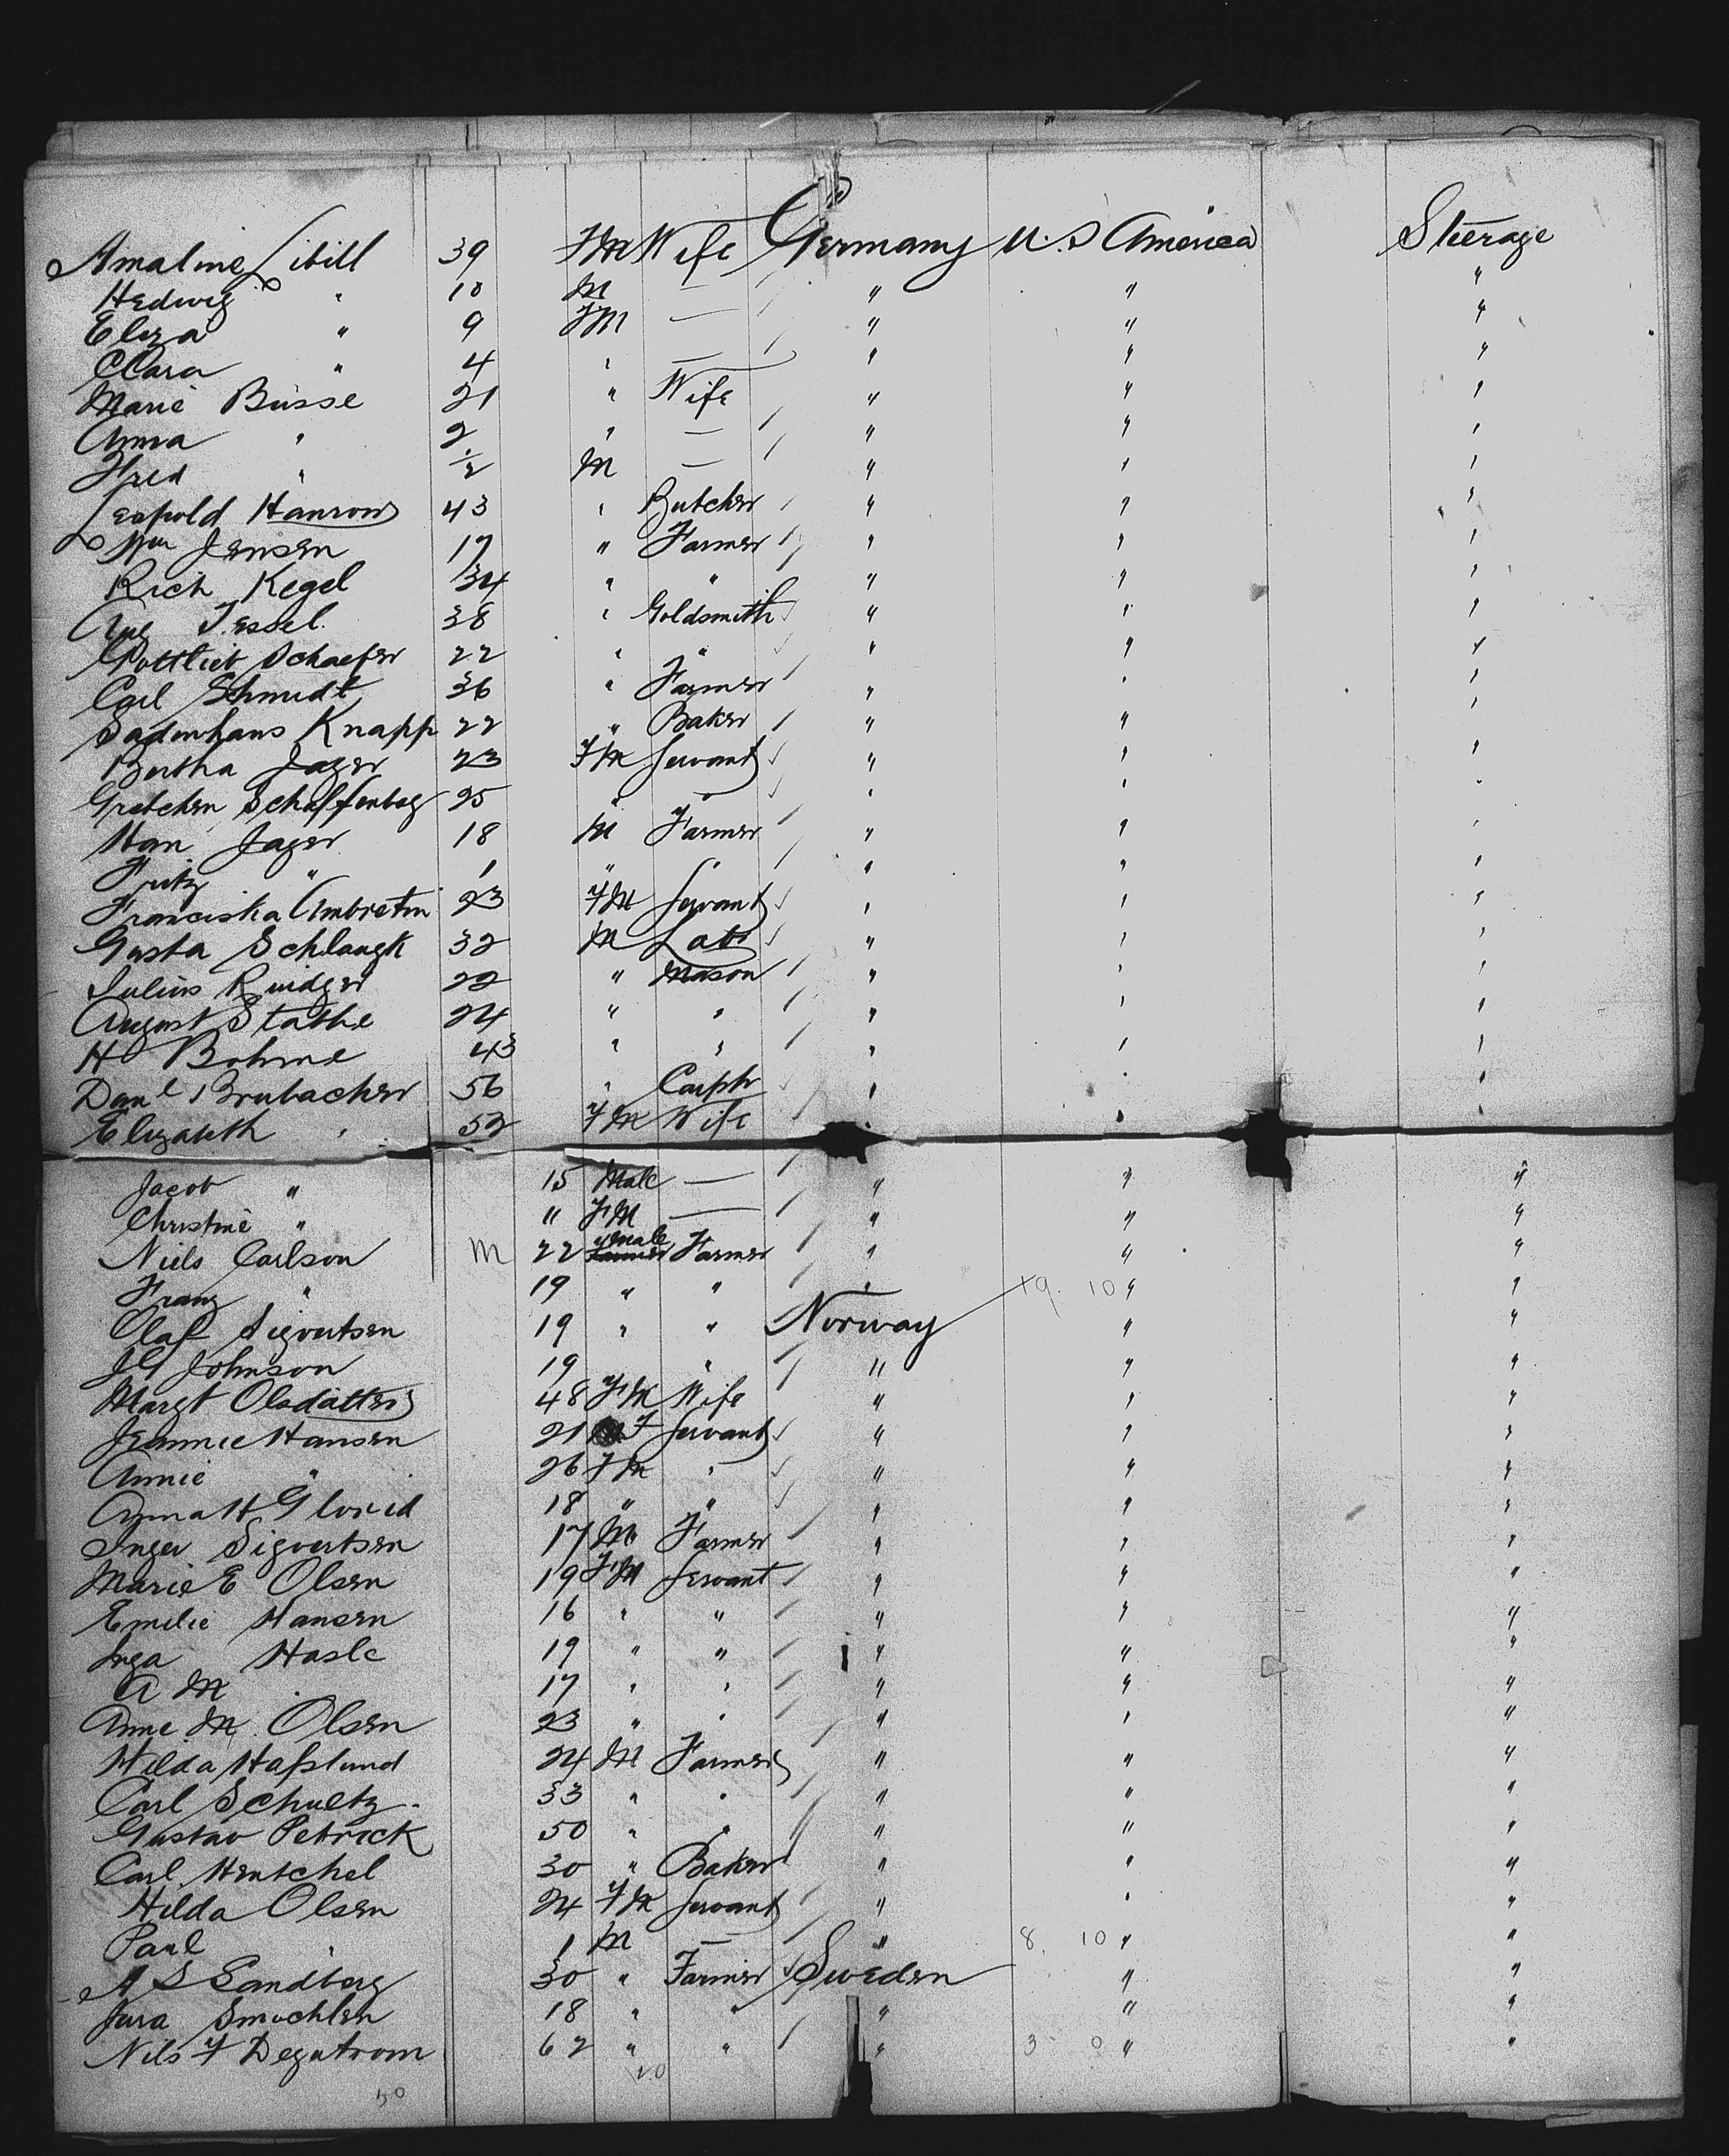 Amaline Libill 39 FM Wife Germany U.S America Steerage
Hedwig " 10 M — " " "
Eliza " 9 FM — " " "
Clara " 4 " — " " "
Marie Busse 21 " Wife " " "
Anna " 2 " — " " "
Fred " 1/2 M — " " "
Leopold Hanrow 43 " Butcher " " "
Wm Jensen 17 " Farmer " " "
Rich Kegel 34 " " " " "
Aug Tessel 38 " Goldsmith " " "
Gottlieb Schaefer 22 " " " " "
Carl Schmidt 36 " Farmer " " "
Sadenhans Knapp 22 " Baker " " "
Bertha Jager 23 FM Servant " " "
Gretchen Schaffenberg 25 " " " " "
Han Jager 18 M Farmer " " "
Fritz " 1 " " " " "
Franciska Ambretin 23 FM Servant " " "
Gusta Schlaugk 32 M Lab " " "
Julius Ruidger 22 " Mason " " "
August Stathe 24 " " " " "
H Bohme 43 " " " " "
Danl Brubacher 56 " Carptr " " "
Elizabeth " 52 FM Wife " " "
Jacob " 15 Male — " " "
Christine " 11 FM — " " "
Niels Carlson M 22 Male Farmer " " "
Franz " 19 " " " 19. 10 " "
Olaf Sigvertsen 19 " " Norway " "
JG Johnson 19 " " " "
Margt Olsdatter 48 FM Wife " " "
Jeannie Hansen 21 F Servant " " "
Annie " 26 FM " " " "
Anna H Glovid 18 " " " " "
Inger Sigvertsen 17 M Farmer " " "
Marie E Olsen 19 FM Servant " " "
Emilie Hansen 16 " " " " "
Inga Hasle 19 " " " " "
A M " 17 " " " " "
Anne M. Olsen 23 " " " " "
Hilda Hafslund 24 M Farmer " " "
Carl Schultz 33 " " " " "
Gustav Petrick 50 " " " " "
Carl Hentchel 30 " Baker " " "
Hilda Olsen 24 FM Servant " " "
Paul " 1 M — " 8. 10 " "
A S Sandberg 30 " Farmer Sweden " "
Jura Smochlen 18 " " " " "
Nils F Degutrom 62 " " " 3 0 " "
50 20